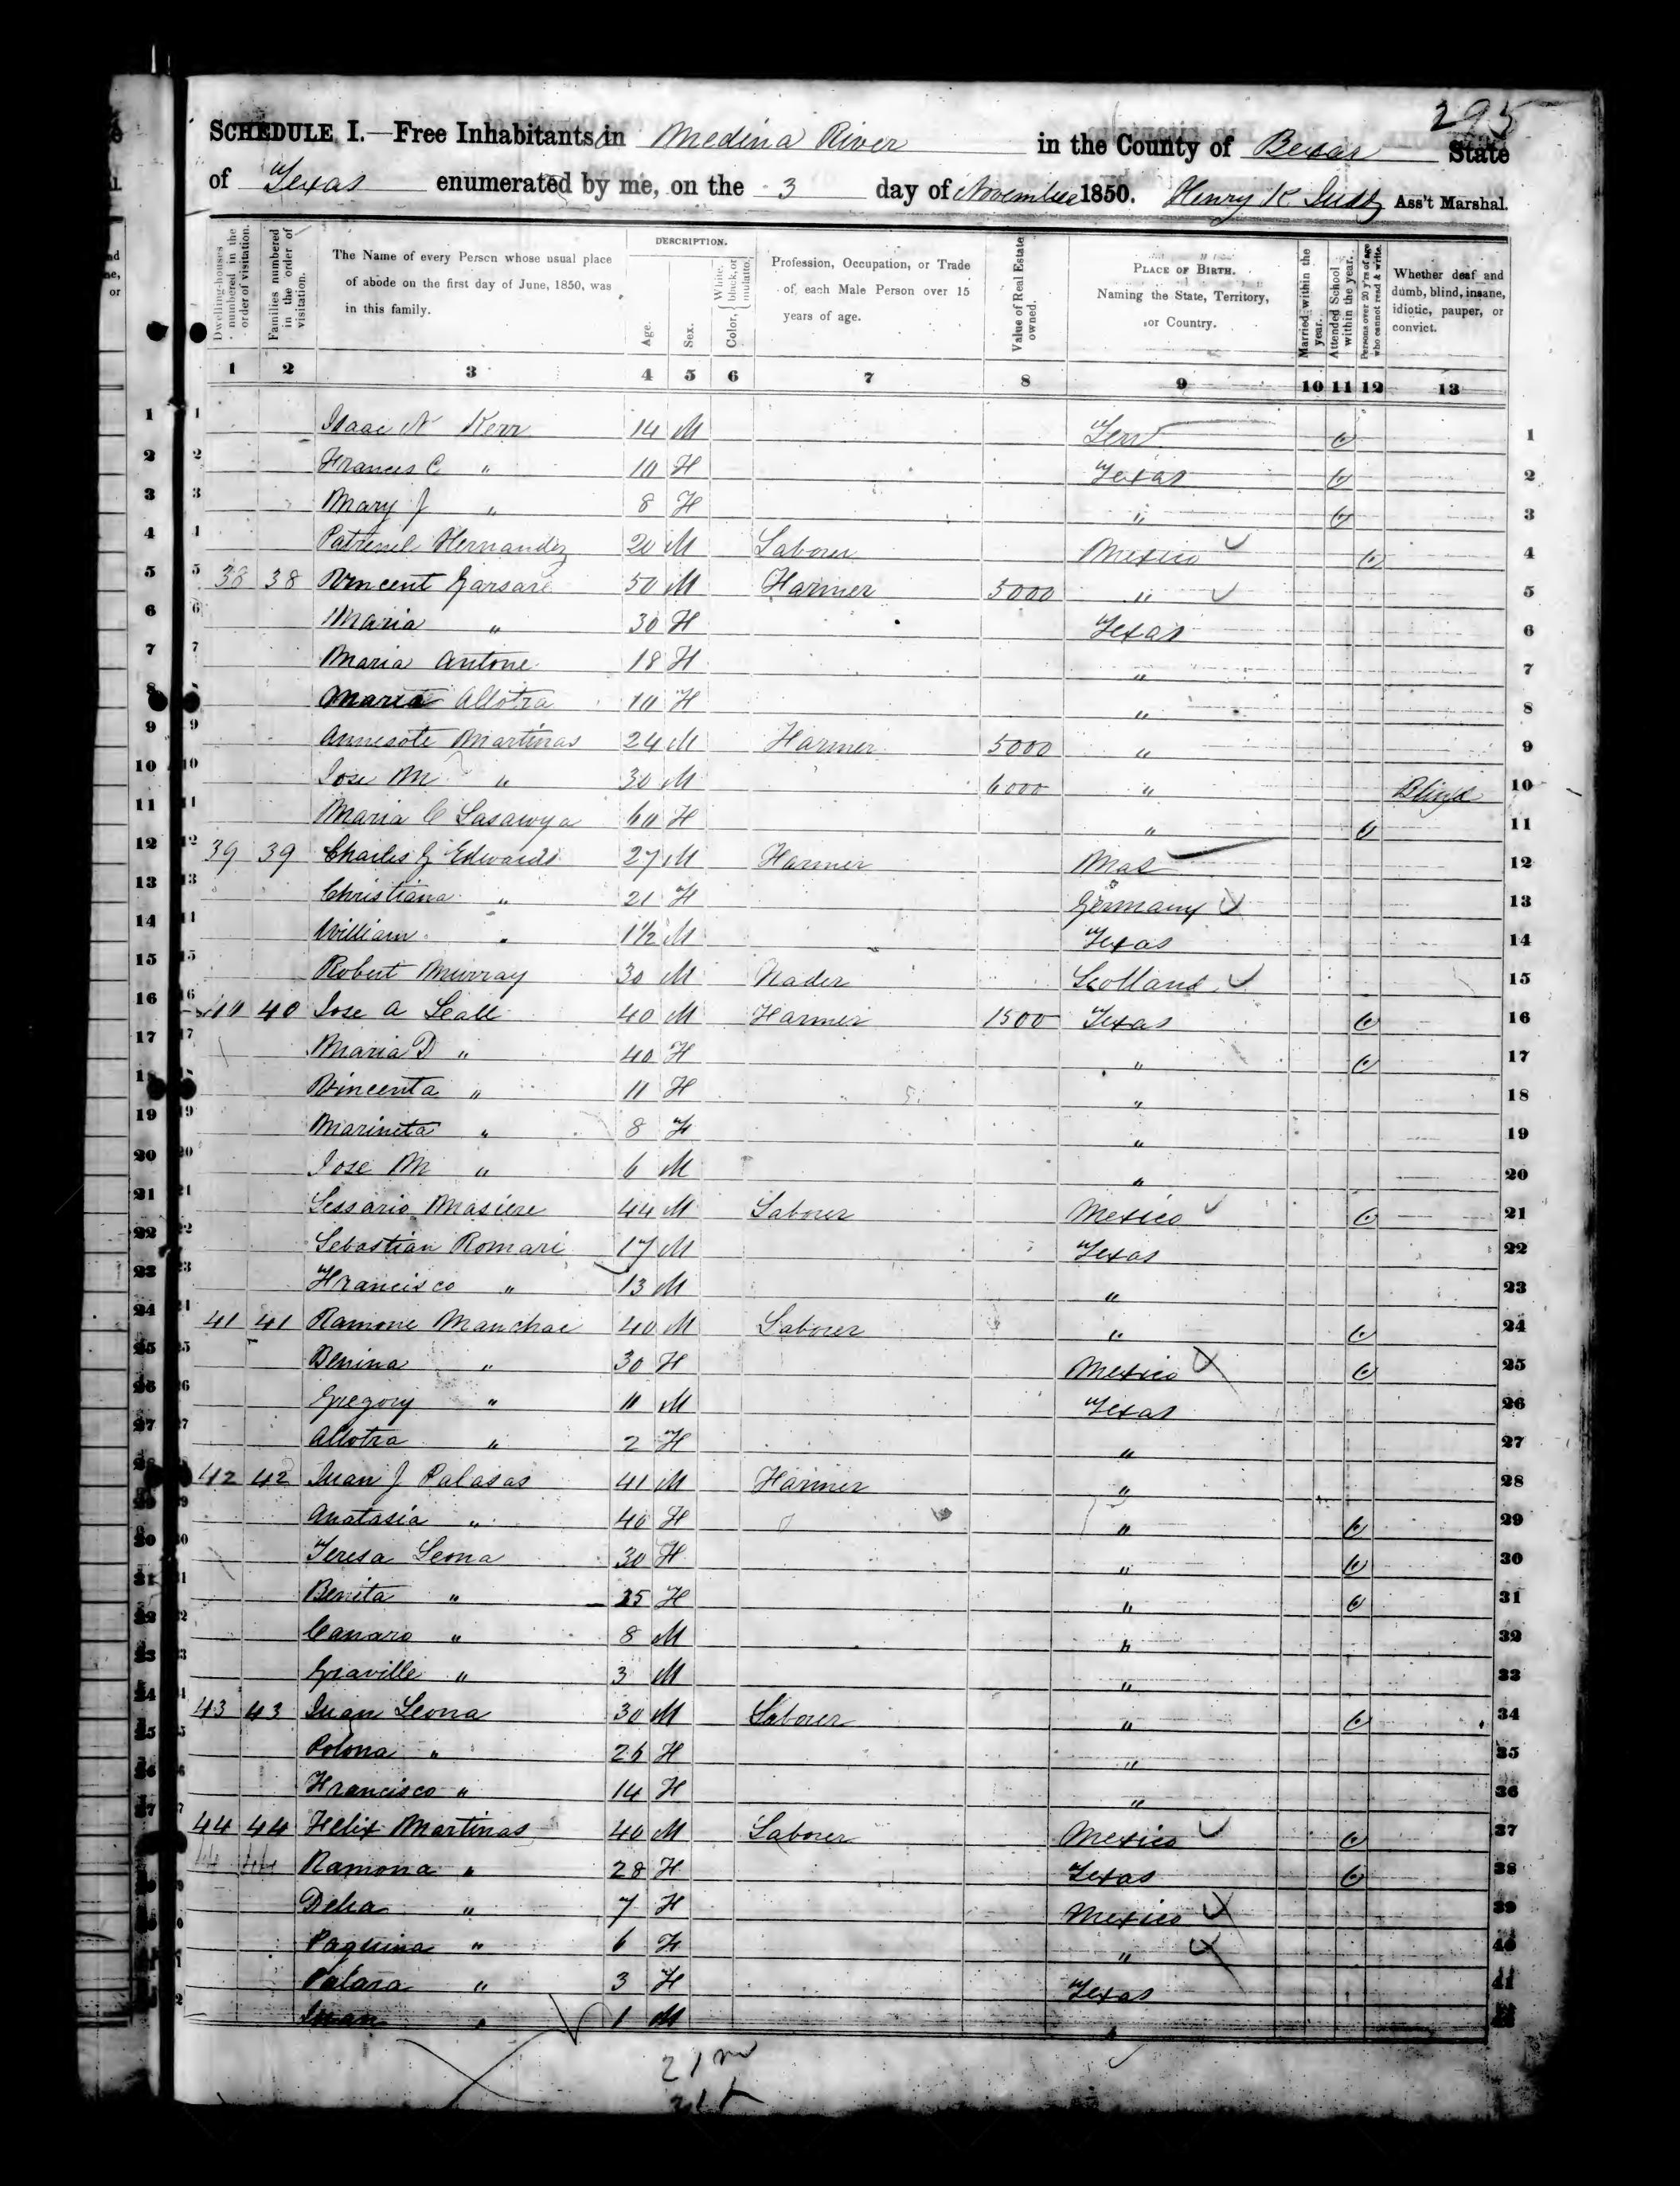 295
SCHEDULE I.—Free Inhabitants in Medina River in the County of Bexar State
of Texas enumerated by me, on the 3 day of November 1850. Henry K Ass't Marshal.
Dwelling-houses numbered in the order of visitation.
Families numbered in the order of visitation.
The Name of every Person whose usual place of abode on the first day of June, 1850, was in this family.
DESCRIPTION.
Age.
Sex.
Color, { White, black, or mulatto.
Profession, Occupation, or Trade of each Male Person over 15 years of age.
Value of Real Estate owned.
PLACE OF BIRTH. Naming the State, Territory, or Country.
Married within the year.
Attended School within the year.
Persons over 20 y'rs of age who cannot read & write.
Whether deaf and dumb, blind, insane, idiotic, pauper, or convict.
1 2 3 4 5 6 7 8 9 10 11 12 13
1 Isaac N Kerr 14 M Ten 1
2 Frances C " 10 F Texas 2
3 Mary J " 8 F " 3
4 Hernandez 20 M Laborer Mexico 4
5 38 38 Vincent Garsare 50 M Farmer 5000 " 5
6 Maria " 30 F Texas 6
7 Maria Antone 18 F " 7
8 Maria Allotra 10 F " 8
9 Martinas 24 M Farmer 5000 " 9
10 Jose M " 30 M 6000 " Blind 10
11 Maria C 60 F " 11
12 39 39 Charles G Edwards 27 M Farmer Mas 12
13 Christiana " 21 F Germany 13
14 William " 1½ M Texas 14
15 Robert Murray 30 M Scotland 15
16 40 40 Jose A Leale 40 M Farmer 1500 Texas 16
17 Maria D " 40 F " 17
18 Vincenta " 11 F " 18
19 Marineta " 8 F " 19
20 Jose M " 6 M " 20
21 Sessario Masiere 44 M Laborer Mexico 21
22 Sebastian Romari 17 M Texas 22
23 Francisco " 13 M " 23
24 41 41 Ramone Manchac 40 M Laborer " 24
25 Benina " 30 F Mexico 25
26 Gregory " 11 M Texas 26
27 Allotra " 2 F " 27
28 42 42 Juan J Palasas 41 M Farmer " 28
29 Anatasia " 40 F " 29
30 Teresa Leona 30 F " 30
31 Benita " 25 F " 31
32 Canaro " 8 M " 32
33 Graville " 3 M " 33
34 43 43 Juan Leona 30 M Laborer " 34
35 Polona " 26 F " 35
36 Francisco " 14 F " 36
37 44 44 Felix Martinas 40 M Laborer Mexico 37
38 44 44 Ramona " 28 F Texas 38
39 Delea " 7 F Mexico 39
40 Paquina " 6 F " 40
41 Palara " 3 F Texas 41
42 Juan " 1 M " 42
21 m
21 f